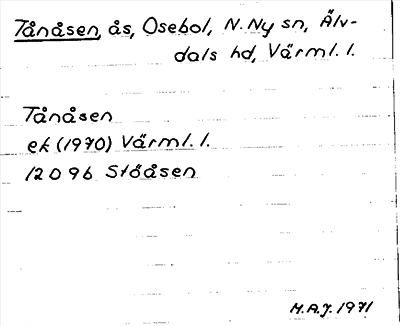 Tånåsen, ås, Osebol, N. Ny sn, Älv-
dals hd, Värml. l.
Tånåsen
ek (1970) Värml. l.
12 D 9b Stöåsen
H.A.J. 1971